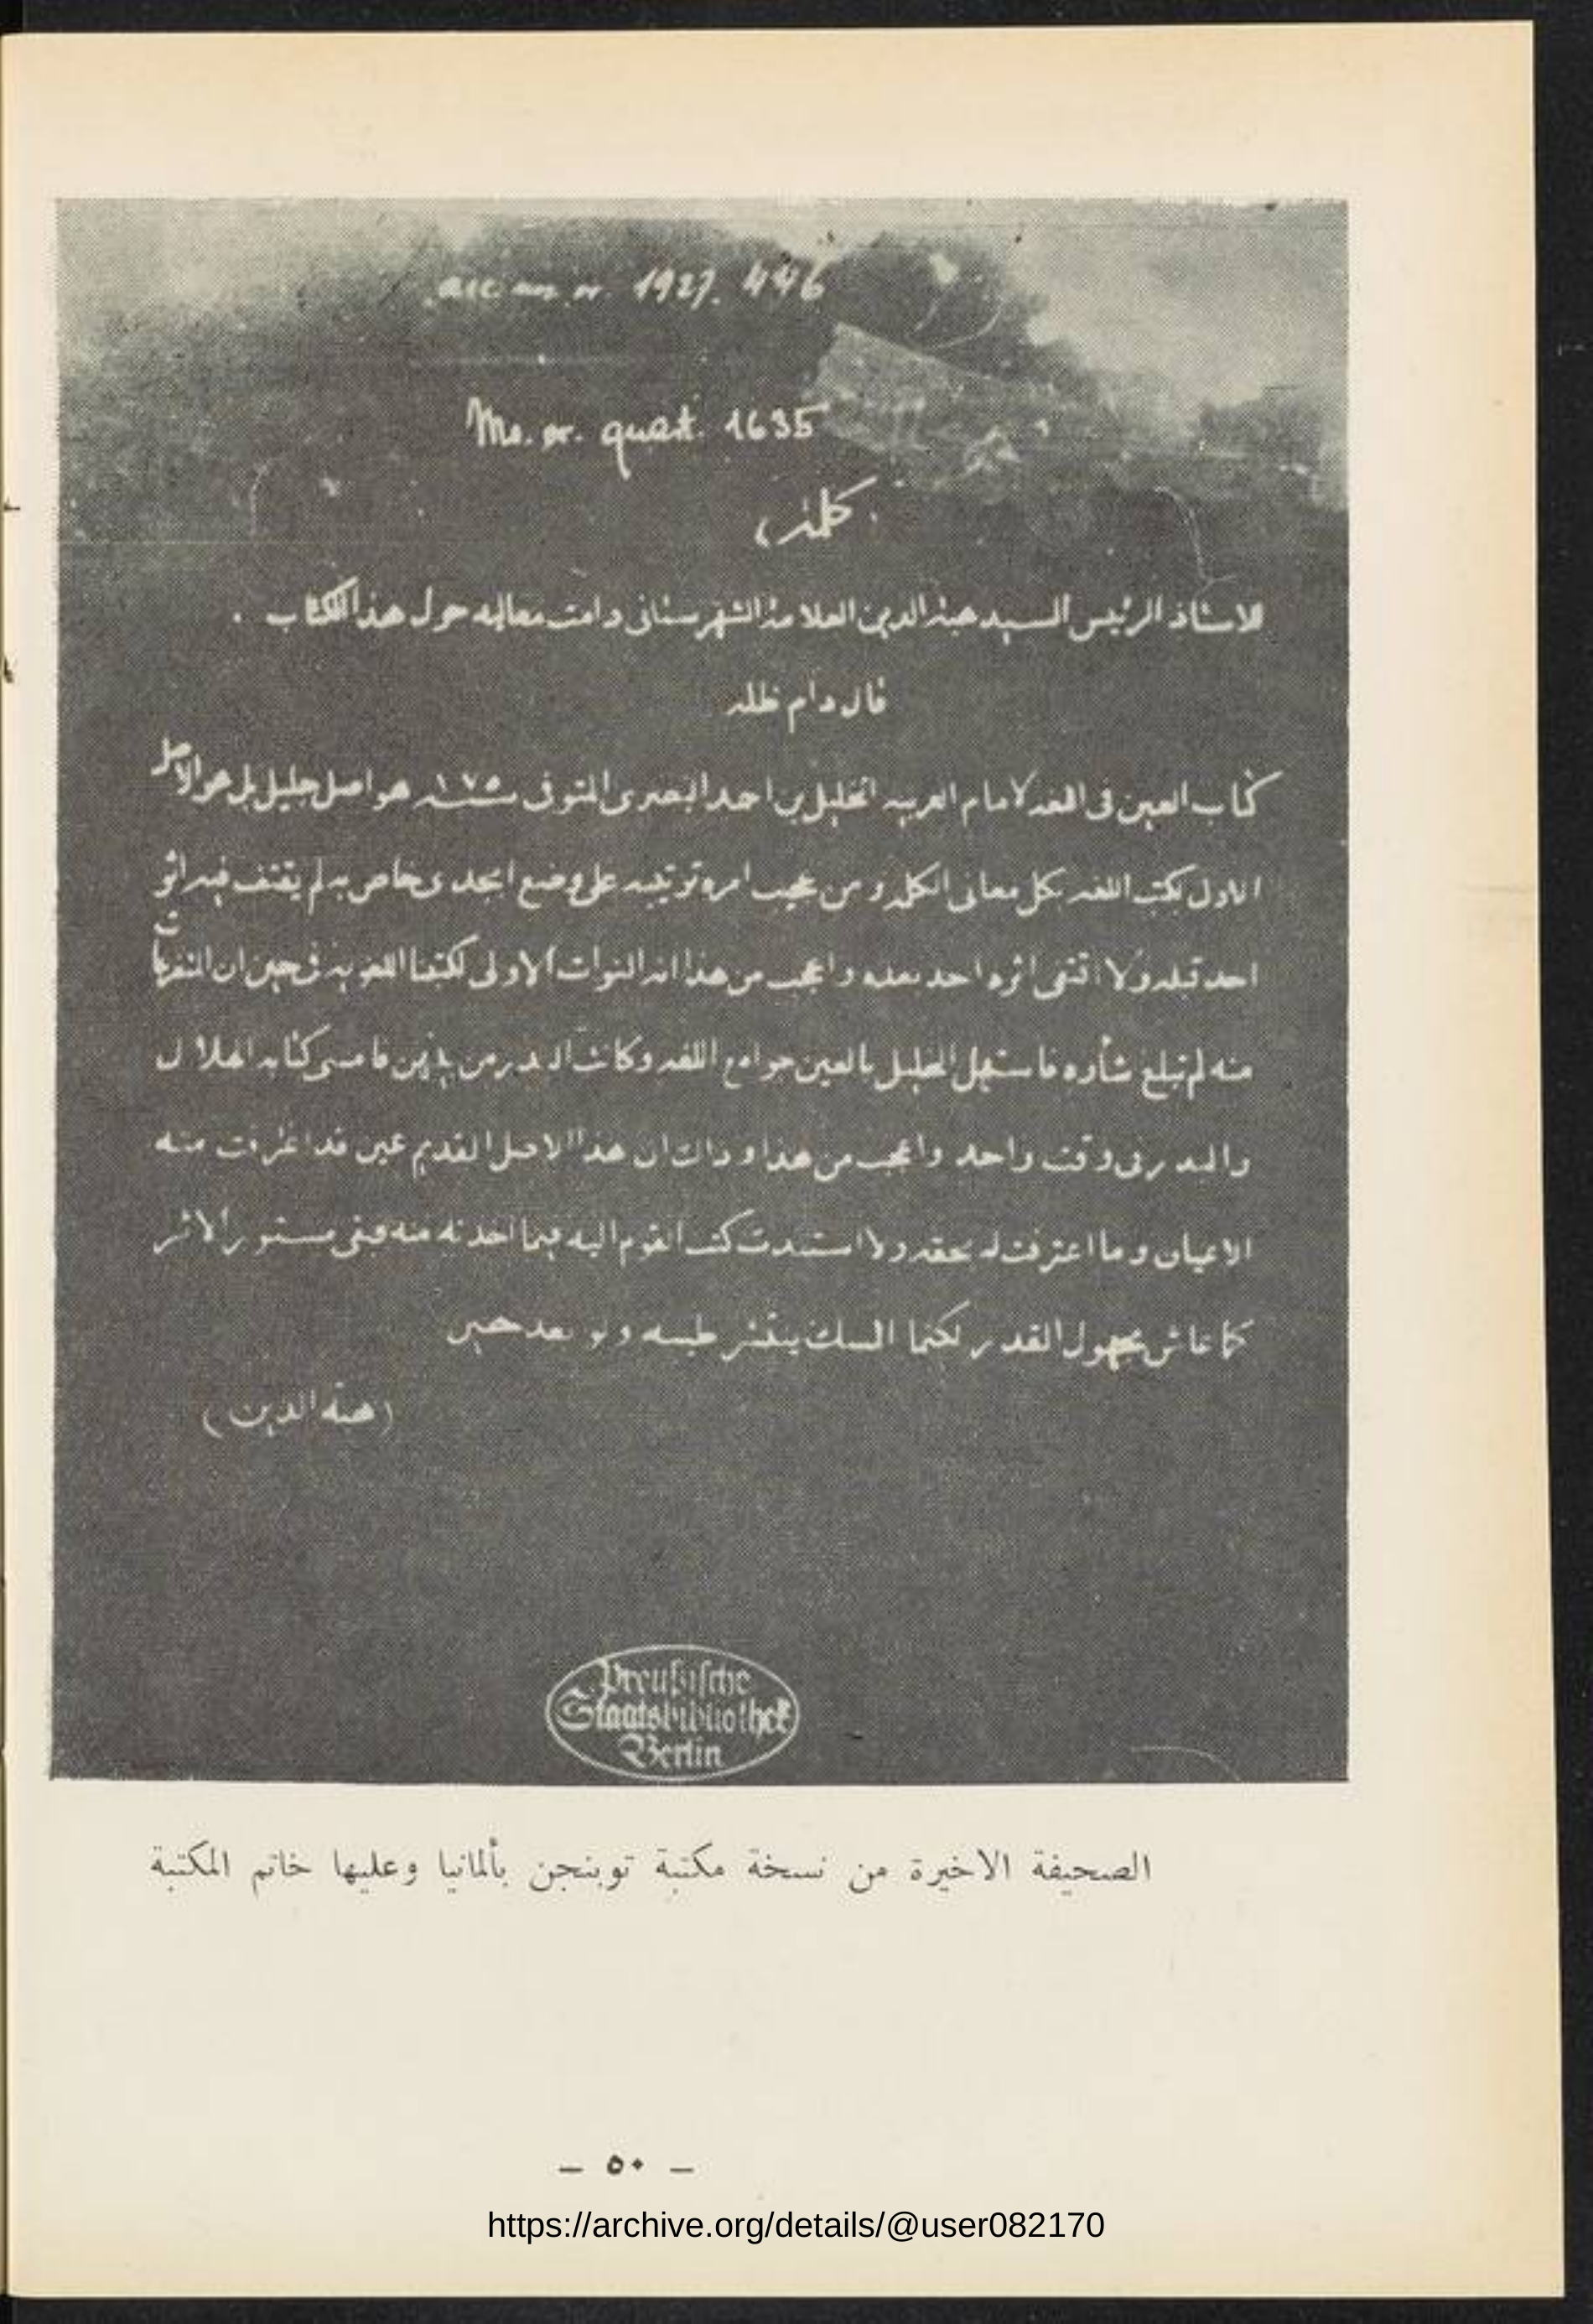 acc. ms. or. 1927. 446
Ms. or. quart. 1635
كلمة
للاستاذ الرئيس السيد هبة الدين العلامة الشهرستاني دامت معاليه حول هذا الكتاب .
قال دام ظله
كتاب العين فى اللغه لامام العربيه الخليل بن احمد البصرى المتوفى سنة ١٧٥ هو اصل جليل بل هو الاصل
الاول لكتب اللغه بكل معانى الكلمه ومن عجيب امره ترتيبه على وضع ابجدى خاص به لم يقتف فيه اثر
احد قبله ولا اقتفى اثره احد بعده واعجب من هذا انه النوات الاولى لكتبنا اللغويه فى حين ان المتفرعات
منه لم تبلغ شأوه فاستهل الخليل بالعين جوامع اللغه وكانت البدر من فامسى كتابه الهلال
والبدر فى وقت واحد واعجب من هذا وذاك ان هذا الاصل القديم عين قد اغترفت منه
الاعيان وما اعترفت له بحقه ولا استندت كتب القوم اليه فيما اخذته منه فبقى مستور الاثر
كما عاش مجهول القدر لكنما المسك ينتشر طيبه ولو بعد حين
(هبة الدين)
Preußische
Staatsbibliothek
Berlin
الصحيفة الاخيرة من نسخة مكتبة توبنجن بألمانيا وعليها خاتم المكتبة
– ٥٠ –
https://archive.org/details/@user082170